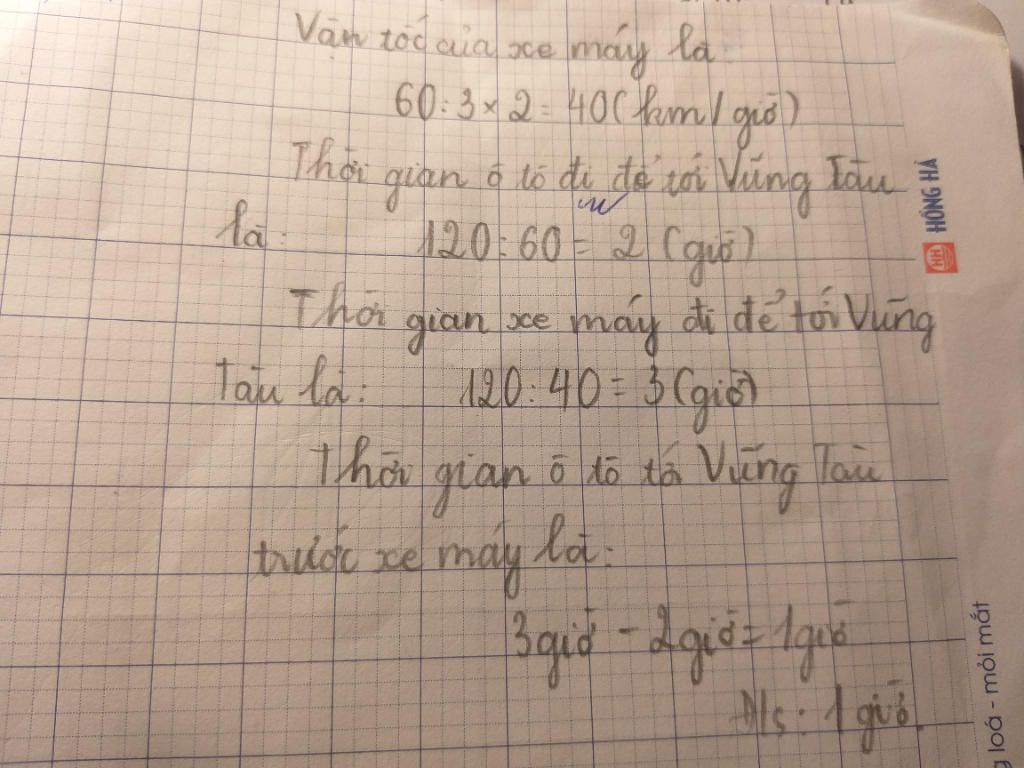 Vận tốc của xe máy là:
60 : 3 × 2 = 40 (km/giờ)
Thời gian ô tô đi để tới Vũng Tàu
là: 120 : 60 = 2 (giờ)
Thời gian xe máy đi để tới Vũng
Tàu là: 120 : 40 = 3 (giờ)
Thời gian ô tô tới Vũng Tàu
trước xe máy là:
3 giờ - 2 giờ = 1 giờ
Đ/s: 1 giờ
HỒNG HÀ
HH
loá - mỏi mắt